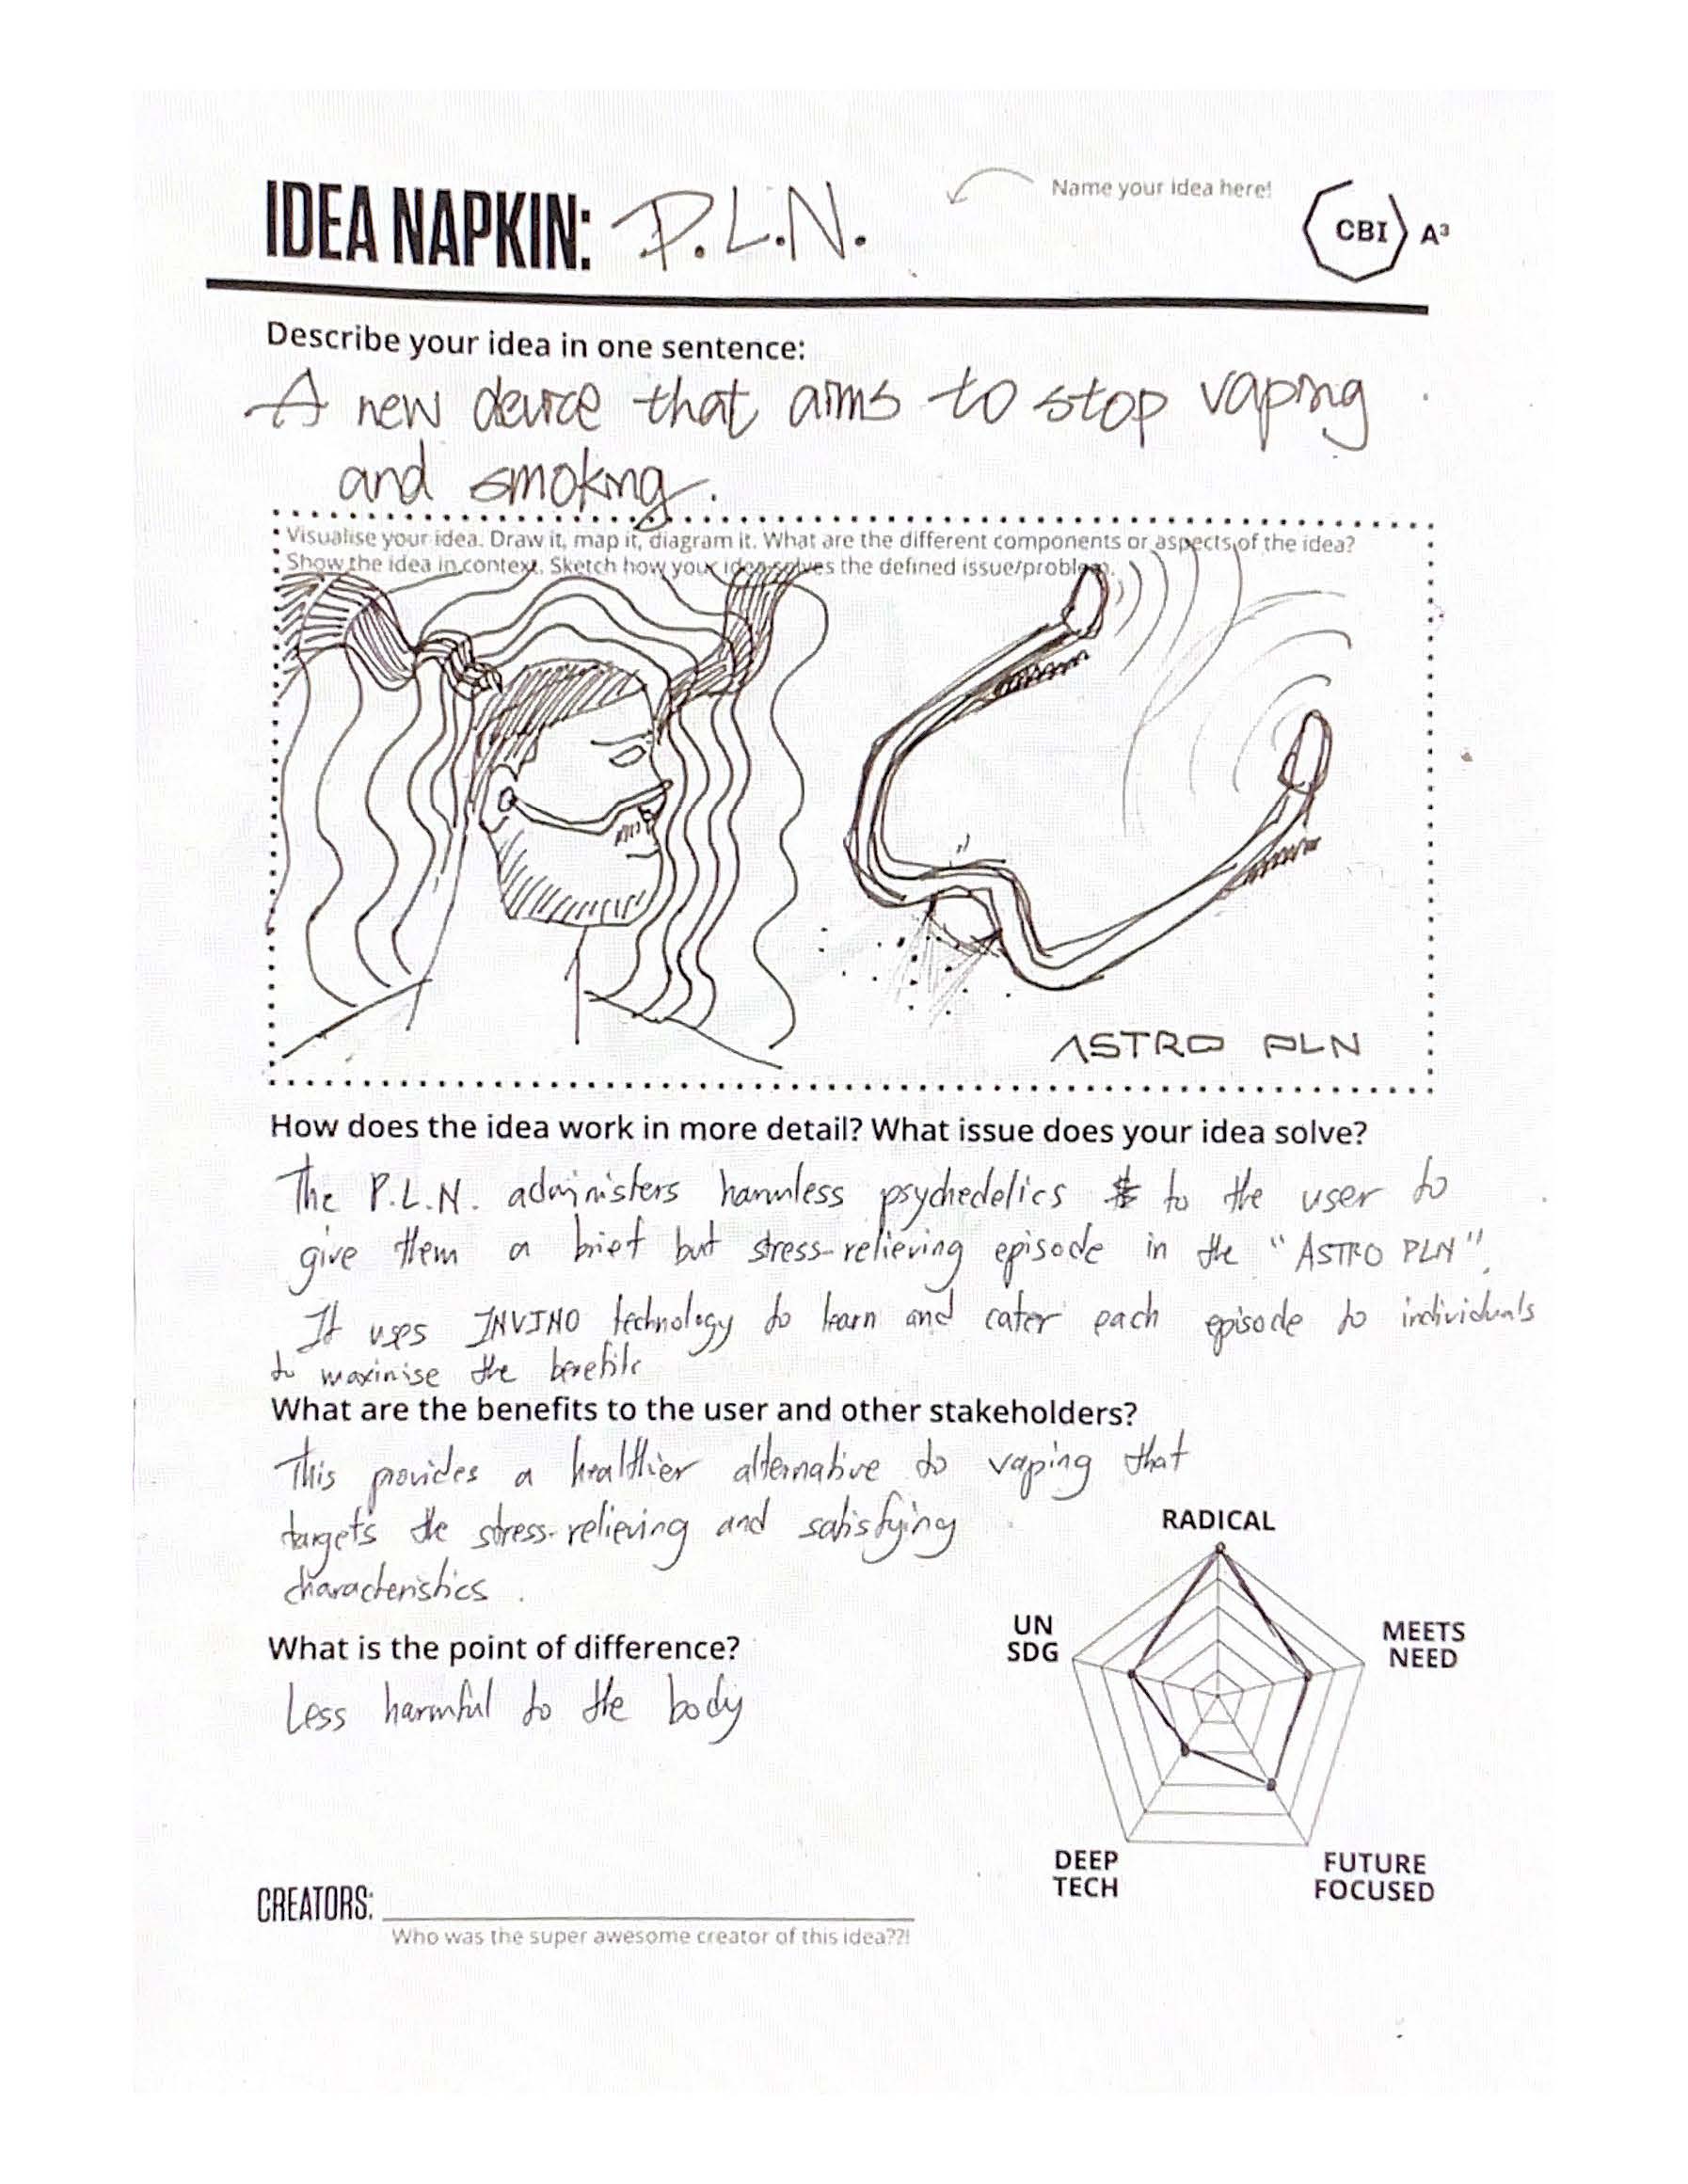 IDEA NAPKIN: P.L.N.
Name your idea here!
CBI A³
Describe your idea in one sentence:
A new device that aims to stop vaping
and smoking.
Visualise your idea. Draw it, map it, diagram it. What are the different components or aspects of the idea?
Show the idea in context. Sketch how your idea solves the defined issue/problem.
ASTRO PLN
How does the idea work in more detail? What issue does your idea solve?
The P.L.N. administers harmless psychedelics to the user to
give them a brief but stress-relieving episode in the "ASTRO PLN".
It uses INVINO technology to learn and cater each episode to individuals
to maximise the benefits
What are the benefits to the user and other stakeholders?
This provides a healthier alternative to vaping that
targets the stress-relieving and satisfying
characteristics.
What is the point of difference?
Less harmful to the body
RADICAL
UN
SDG
MEETS
NEED
DEEP
TECH
FUTURE
FOCUSED
CREATORS:
Who was the super awesome creator of this idea??!